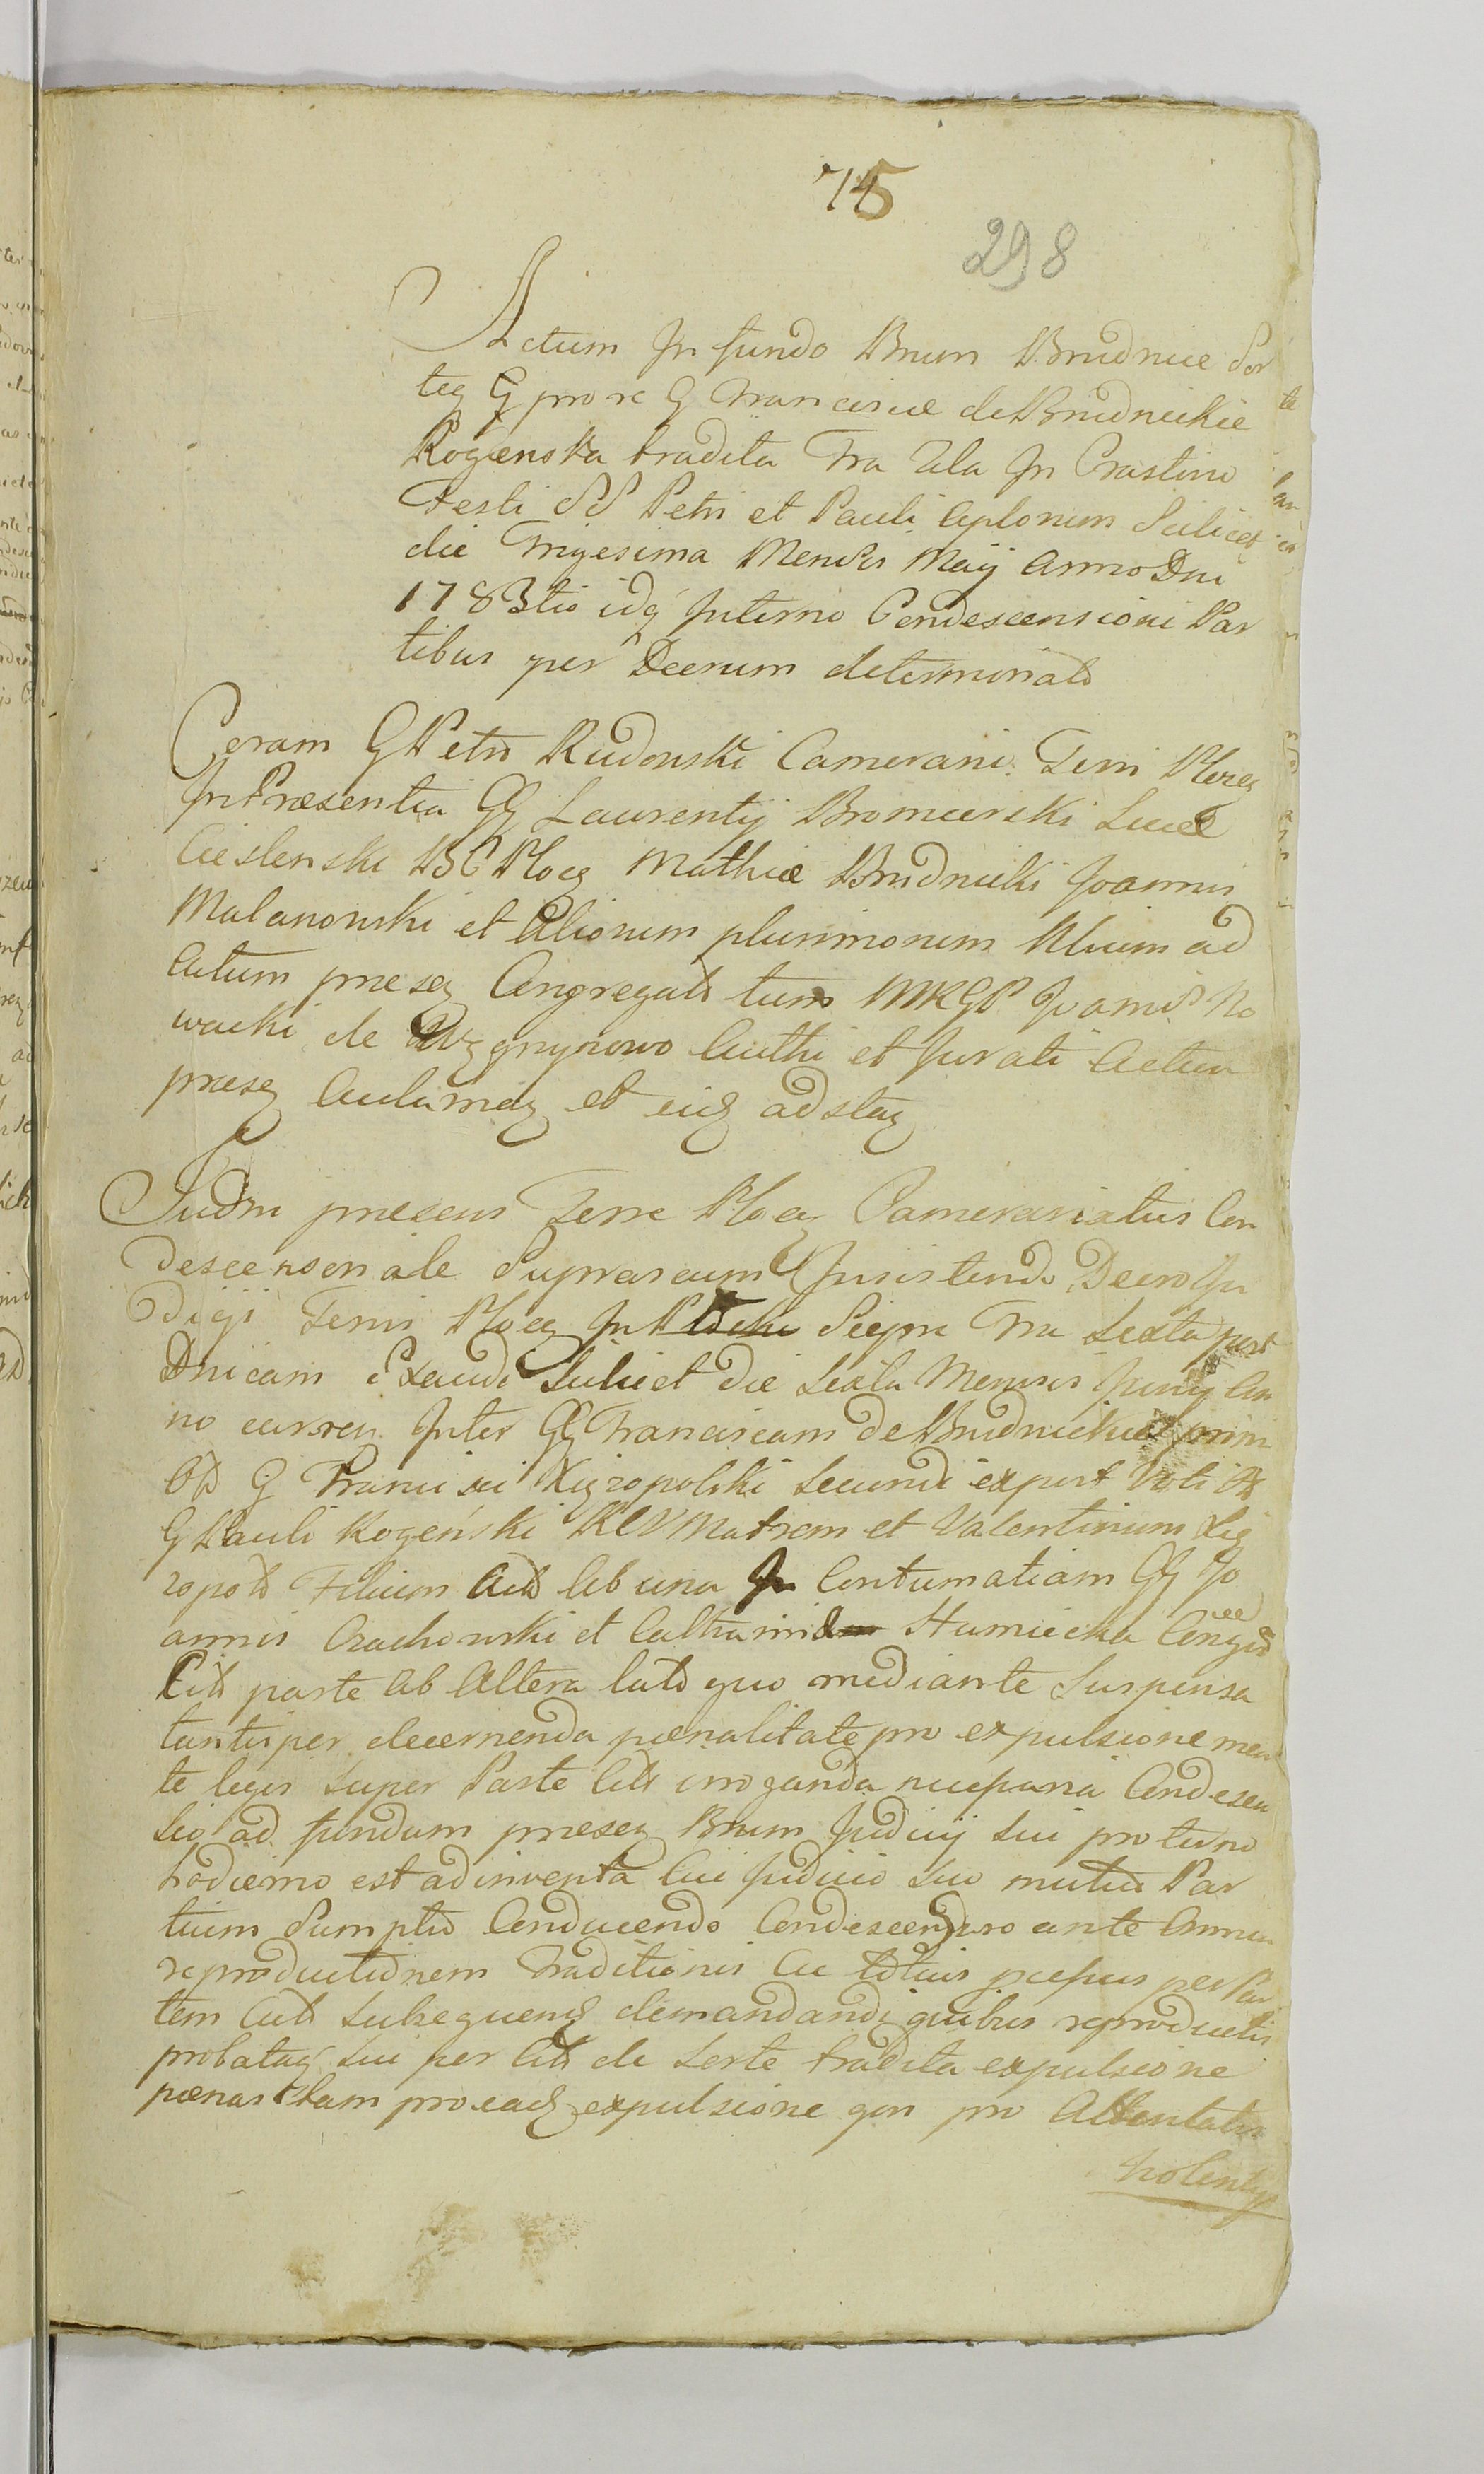 745
298
Actum In fundo Bnum Brudnice Sor
teq G prore G Franciscæ de Brudnickie
Rogienska tradita Fra 2da In Crastino
Festi SS Petri et Pauli Aplorum Scilicet
die Trigesima Mensis Maij Anno Dni
1783tio idq Intermo Condescensioni Par
tibus per Decrum determinato
Coram G Petro Rudowski Camerario Terri Plocq
In Præsentia GG Laurentij Bromierski Lucæ
Cieslenski BC Plocq Mathiæ Brudnicki Joannis
Malanowski et Aliorum plurimorum Nlium ad
Actum præseq Congregato tum MRGD Joannis No
wacki de Authi et Jurati Actum
præseq Calamoq et eiq adstaq
Judm præsens Terre Plocq Camerariatus Con
descensoriale Suprascum Insistendo Decro Ju
dicji Terris Plocq In Scepne Fra Sexta post
Dnicam Exaudi Scilicet die Sexta Mensis Junij An
no curren Inter GG Franciscam de Brudnickie prim
OD G Francisci Xięzopolski Secundi expost Voti
G Pauli Rogeński RCV Matrem et Valentinum Xię
zopols Filium Acts Ab una In Contumatiam GG Jo
annis Czachowski et Catharina Humiecka Congu
Cits parte Ab Altera lato quo mediante Suspensa
tantisper decernenda pœnalitate pro expulsione men
te legis Super Parte Cits irroganda Condescen
sio ad fundum præseq Bnum Judicij Sui pro termo
hodierno est adinventa Cui Judicio Suo mutuo Par
tium Sumptu Conducendo Condescendero ante Omnem
reproductionem Traditionis Ac per Par
tem Acts Subsequenq demandandq quibus reproductis
probataq Sui per Cits de Sorte tradita expulsione
pœnas tam pro eadq expulsione qon pro Attentatis
Violentijs